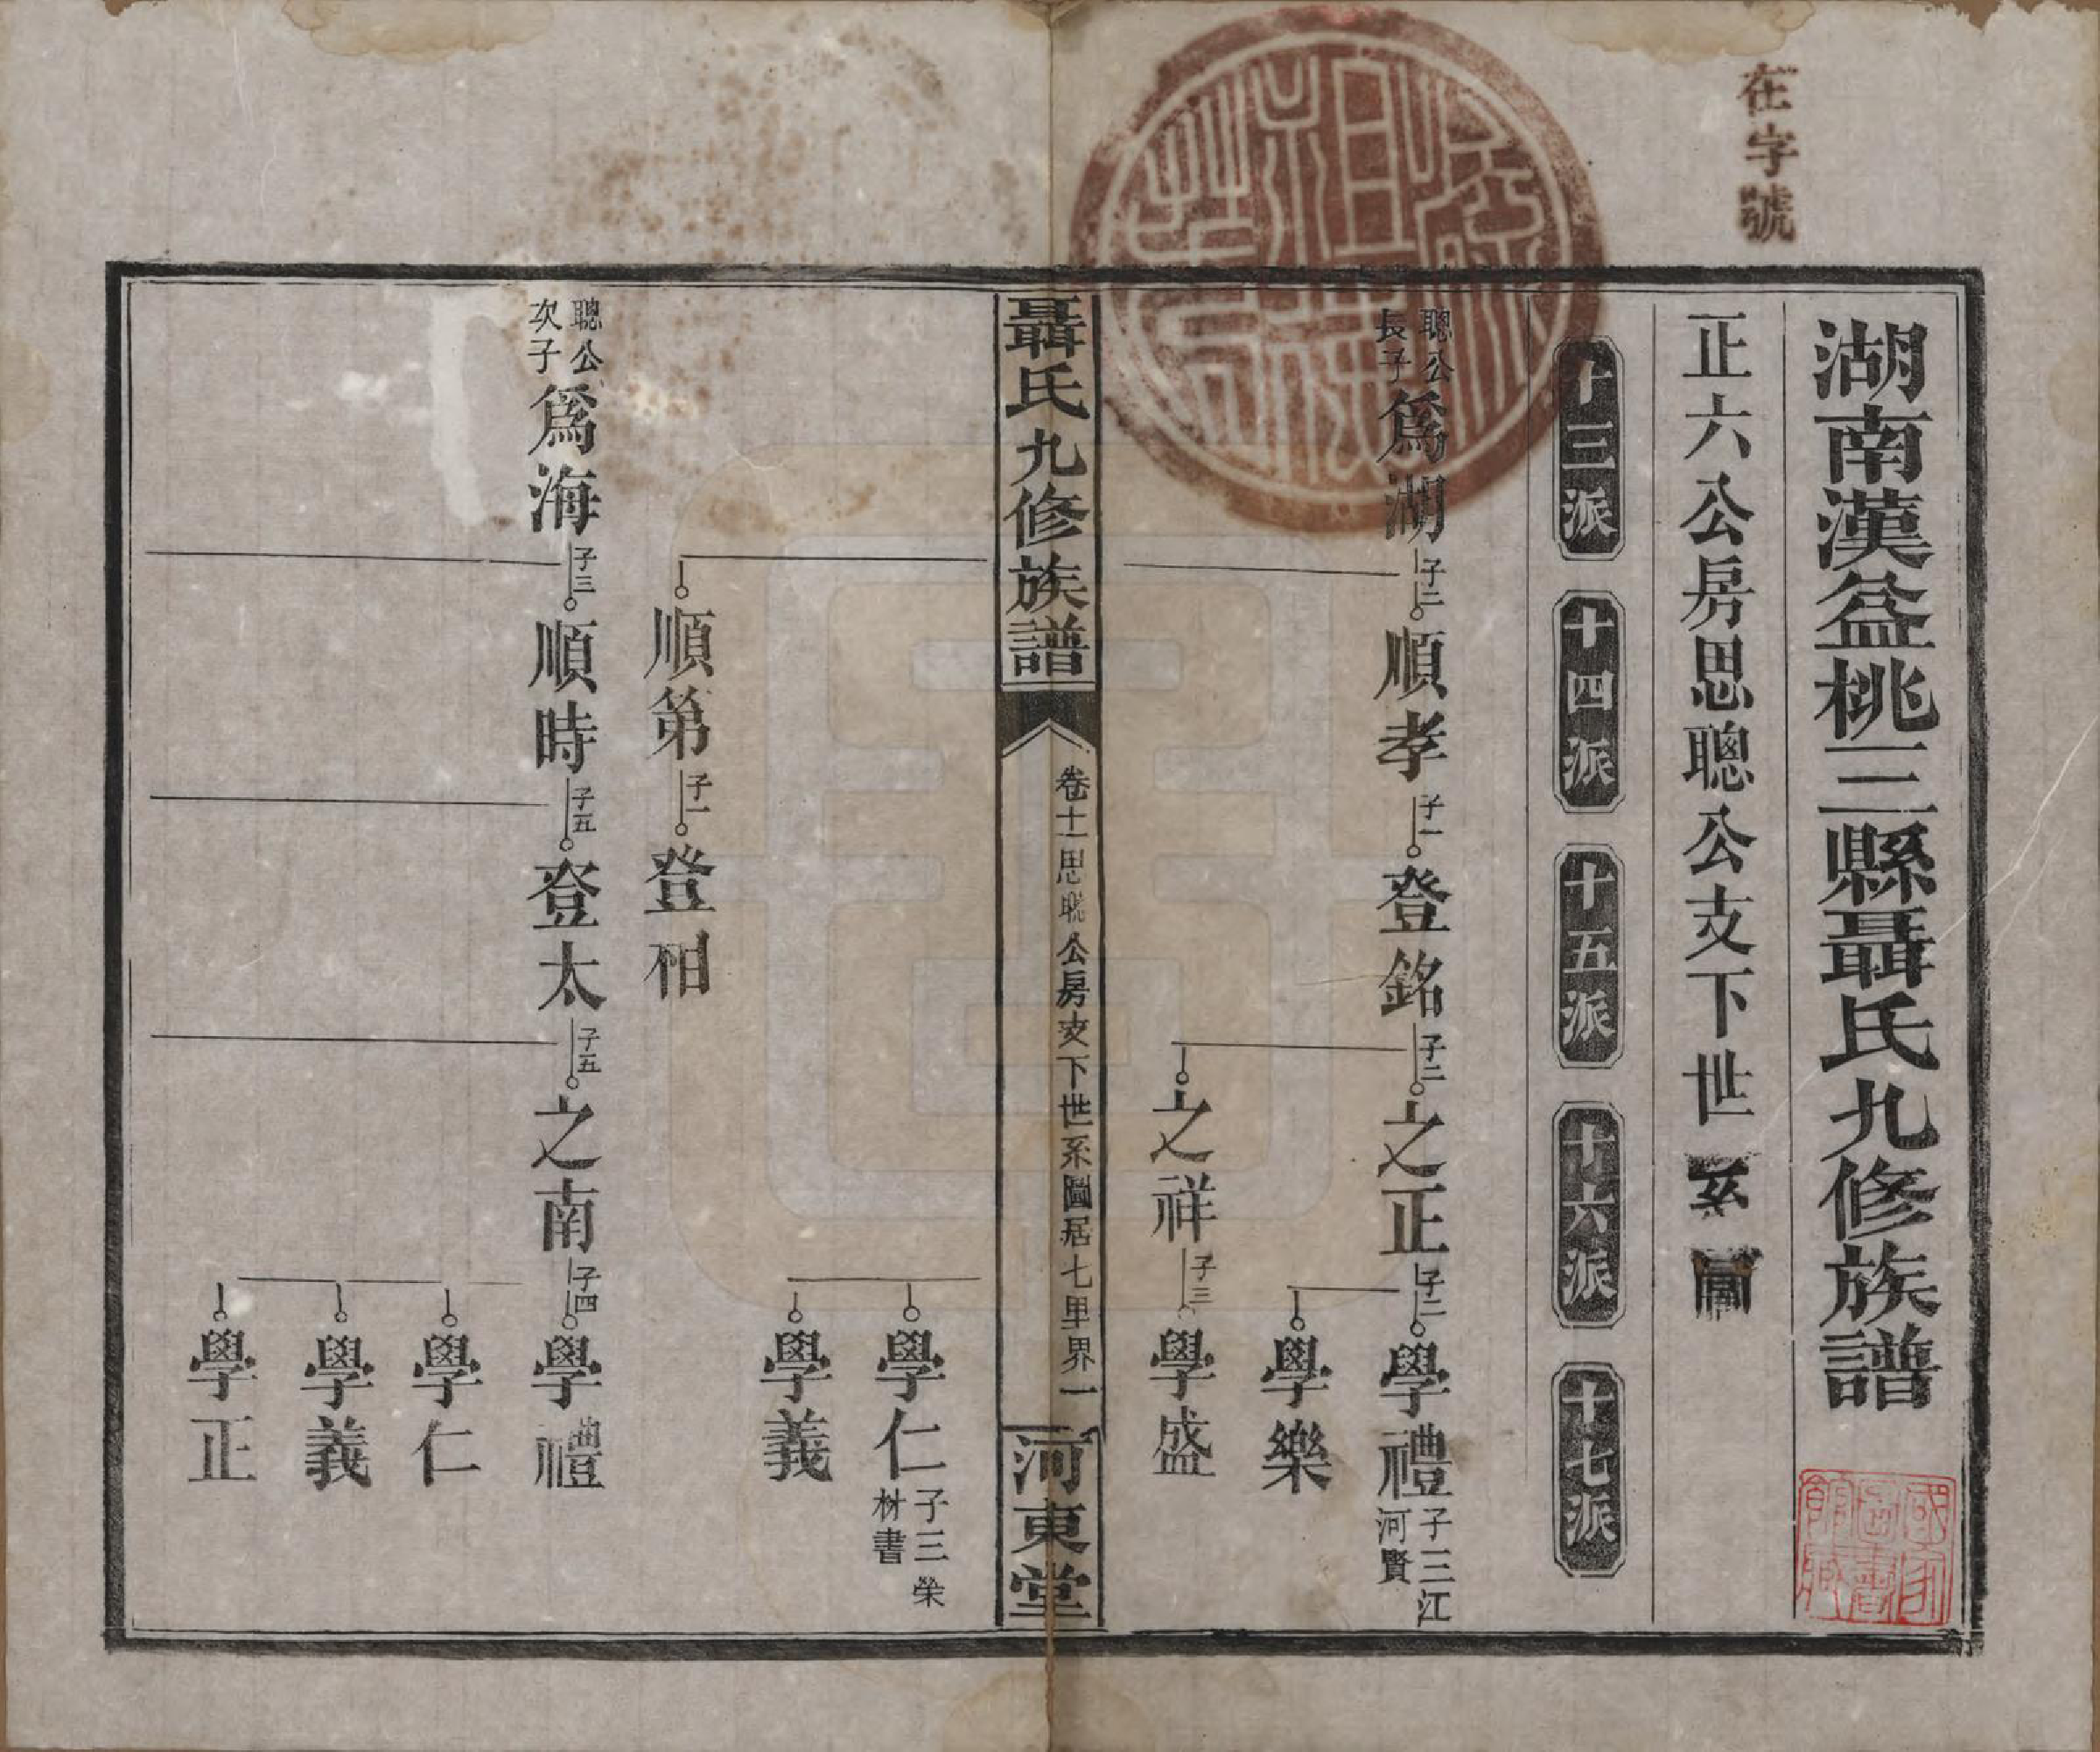 在字號
湖南漢益桃三縣聶氏九修族譜
正六公房思聰公支下世系圖
十三派 十四派 十五派 十六派 十七派
聰公長子 爲湖 子二 順孝 子一 登銘 子二 之正 子二 學禮 子三 江河賢
學樂
之祥 子三 學盛
聶氏九修族譜 卷十一思聰公房支下世系圖居七里界一 河東堂
學仁 子三 榮材書
學義
順第 子一 登相
聰公次子 爲海 子三 順時 子五 登太 子五 之南 子四 學禮
學仁
學義
學正
國家圖書館藏